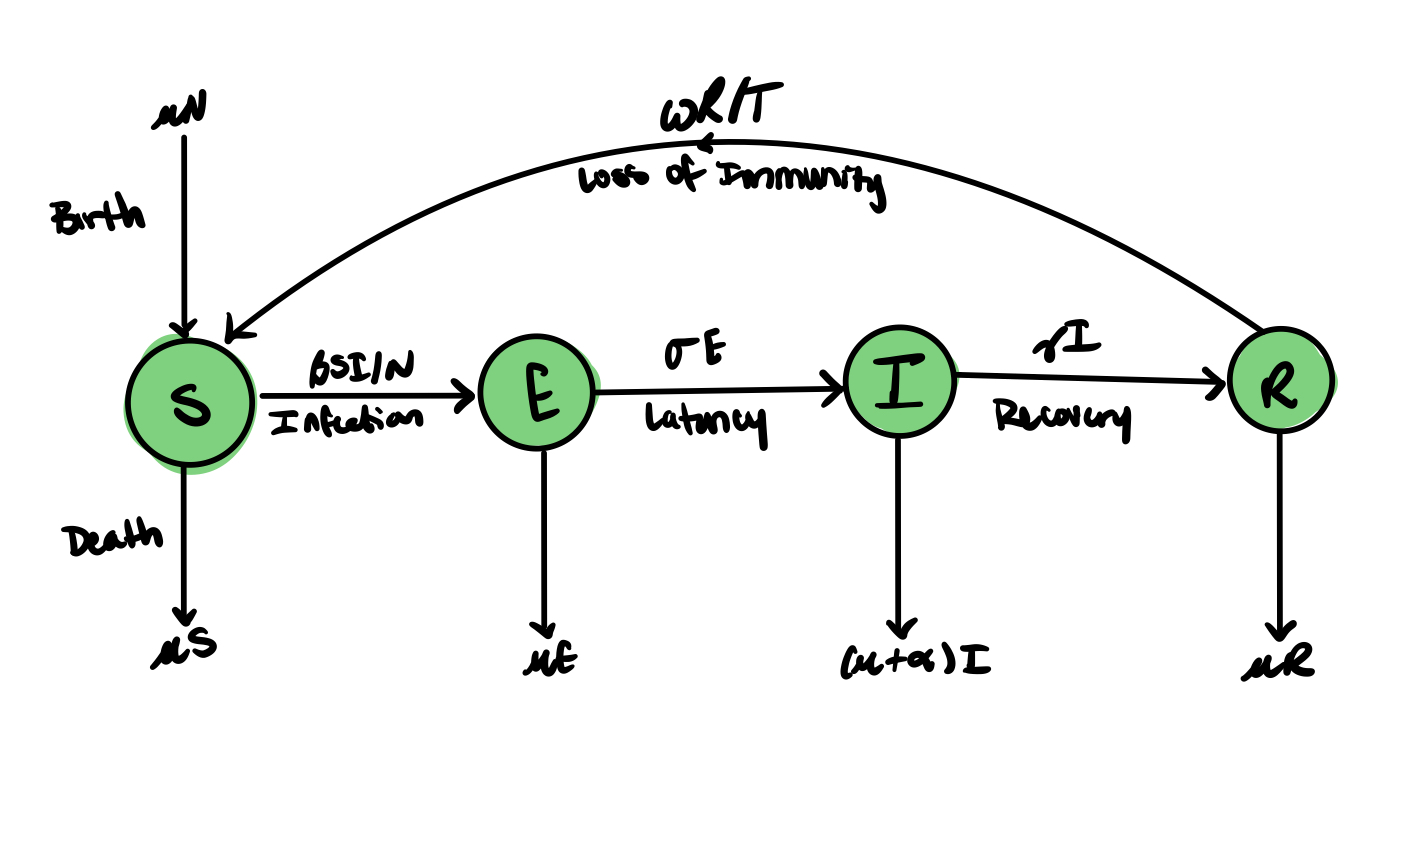 μN
ωR/T
Loss of Immunity
Birth
S
βSI/N
Infection
E
σE
Latency
I
γI
Recovery
R
Death
μS
μE
(μ+α)I
μR